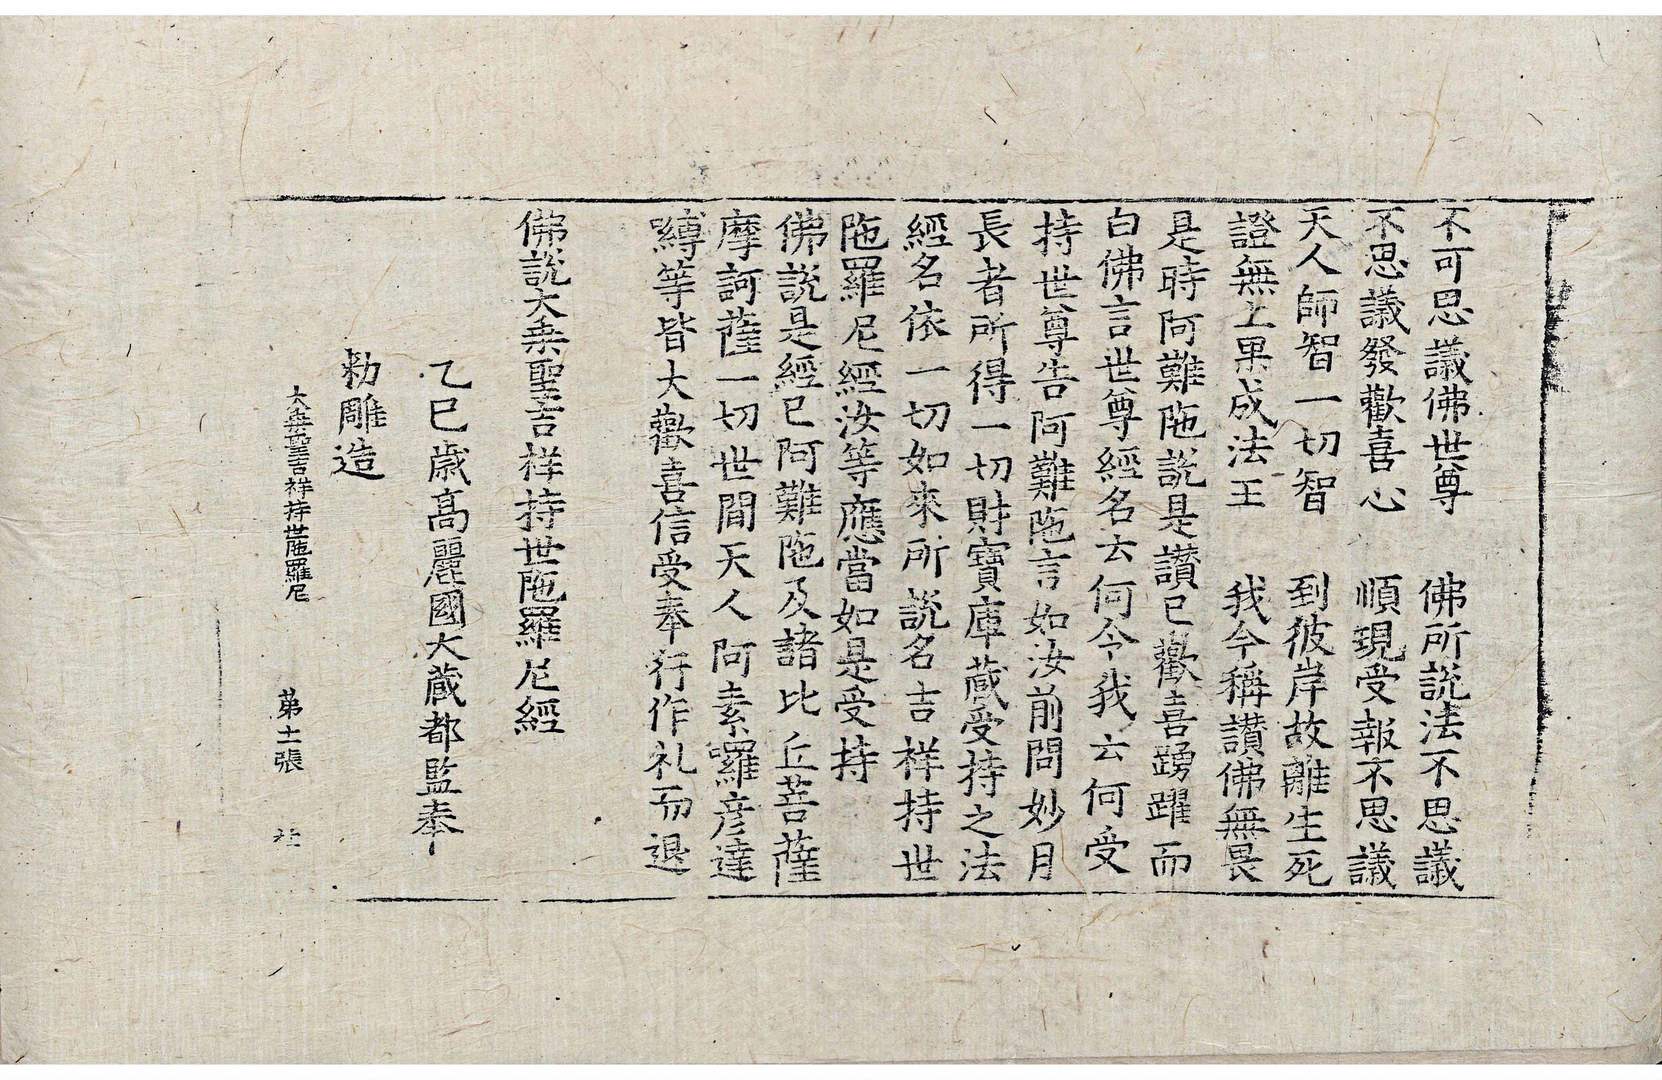 不可思議佛世尊　佛所說法不思議
不思議發歡喜心　順現受報不思議
天人師智一切智　到彼岸故離生死
證無上果成法王　我今稱讃佛無畏
是時阿難陁說是讃已歡喜踴躍而
白佛言世尊經名云何令我云何受
持世尊告阿難陁言如汝前問妙月
長者所得一切財寶庫藏受持之法
經名依一切如來所說名吉祥持世
陁羅尼經汝等應當如是受持
佛說是經已阿難陁及諸比丘菩薩
摩訶薩一切世間天人阿素羅彦達
縛等皆大歡喜信受奉行作礼而退
佛說大乗聖吉祥持世陁羅尼經
乙巳歳高麗國大藏都監奉
勑雕造
大乗聖吉祥持世陁羅尼　第十一張